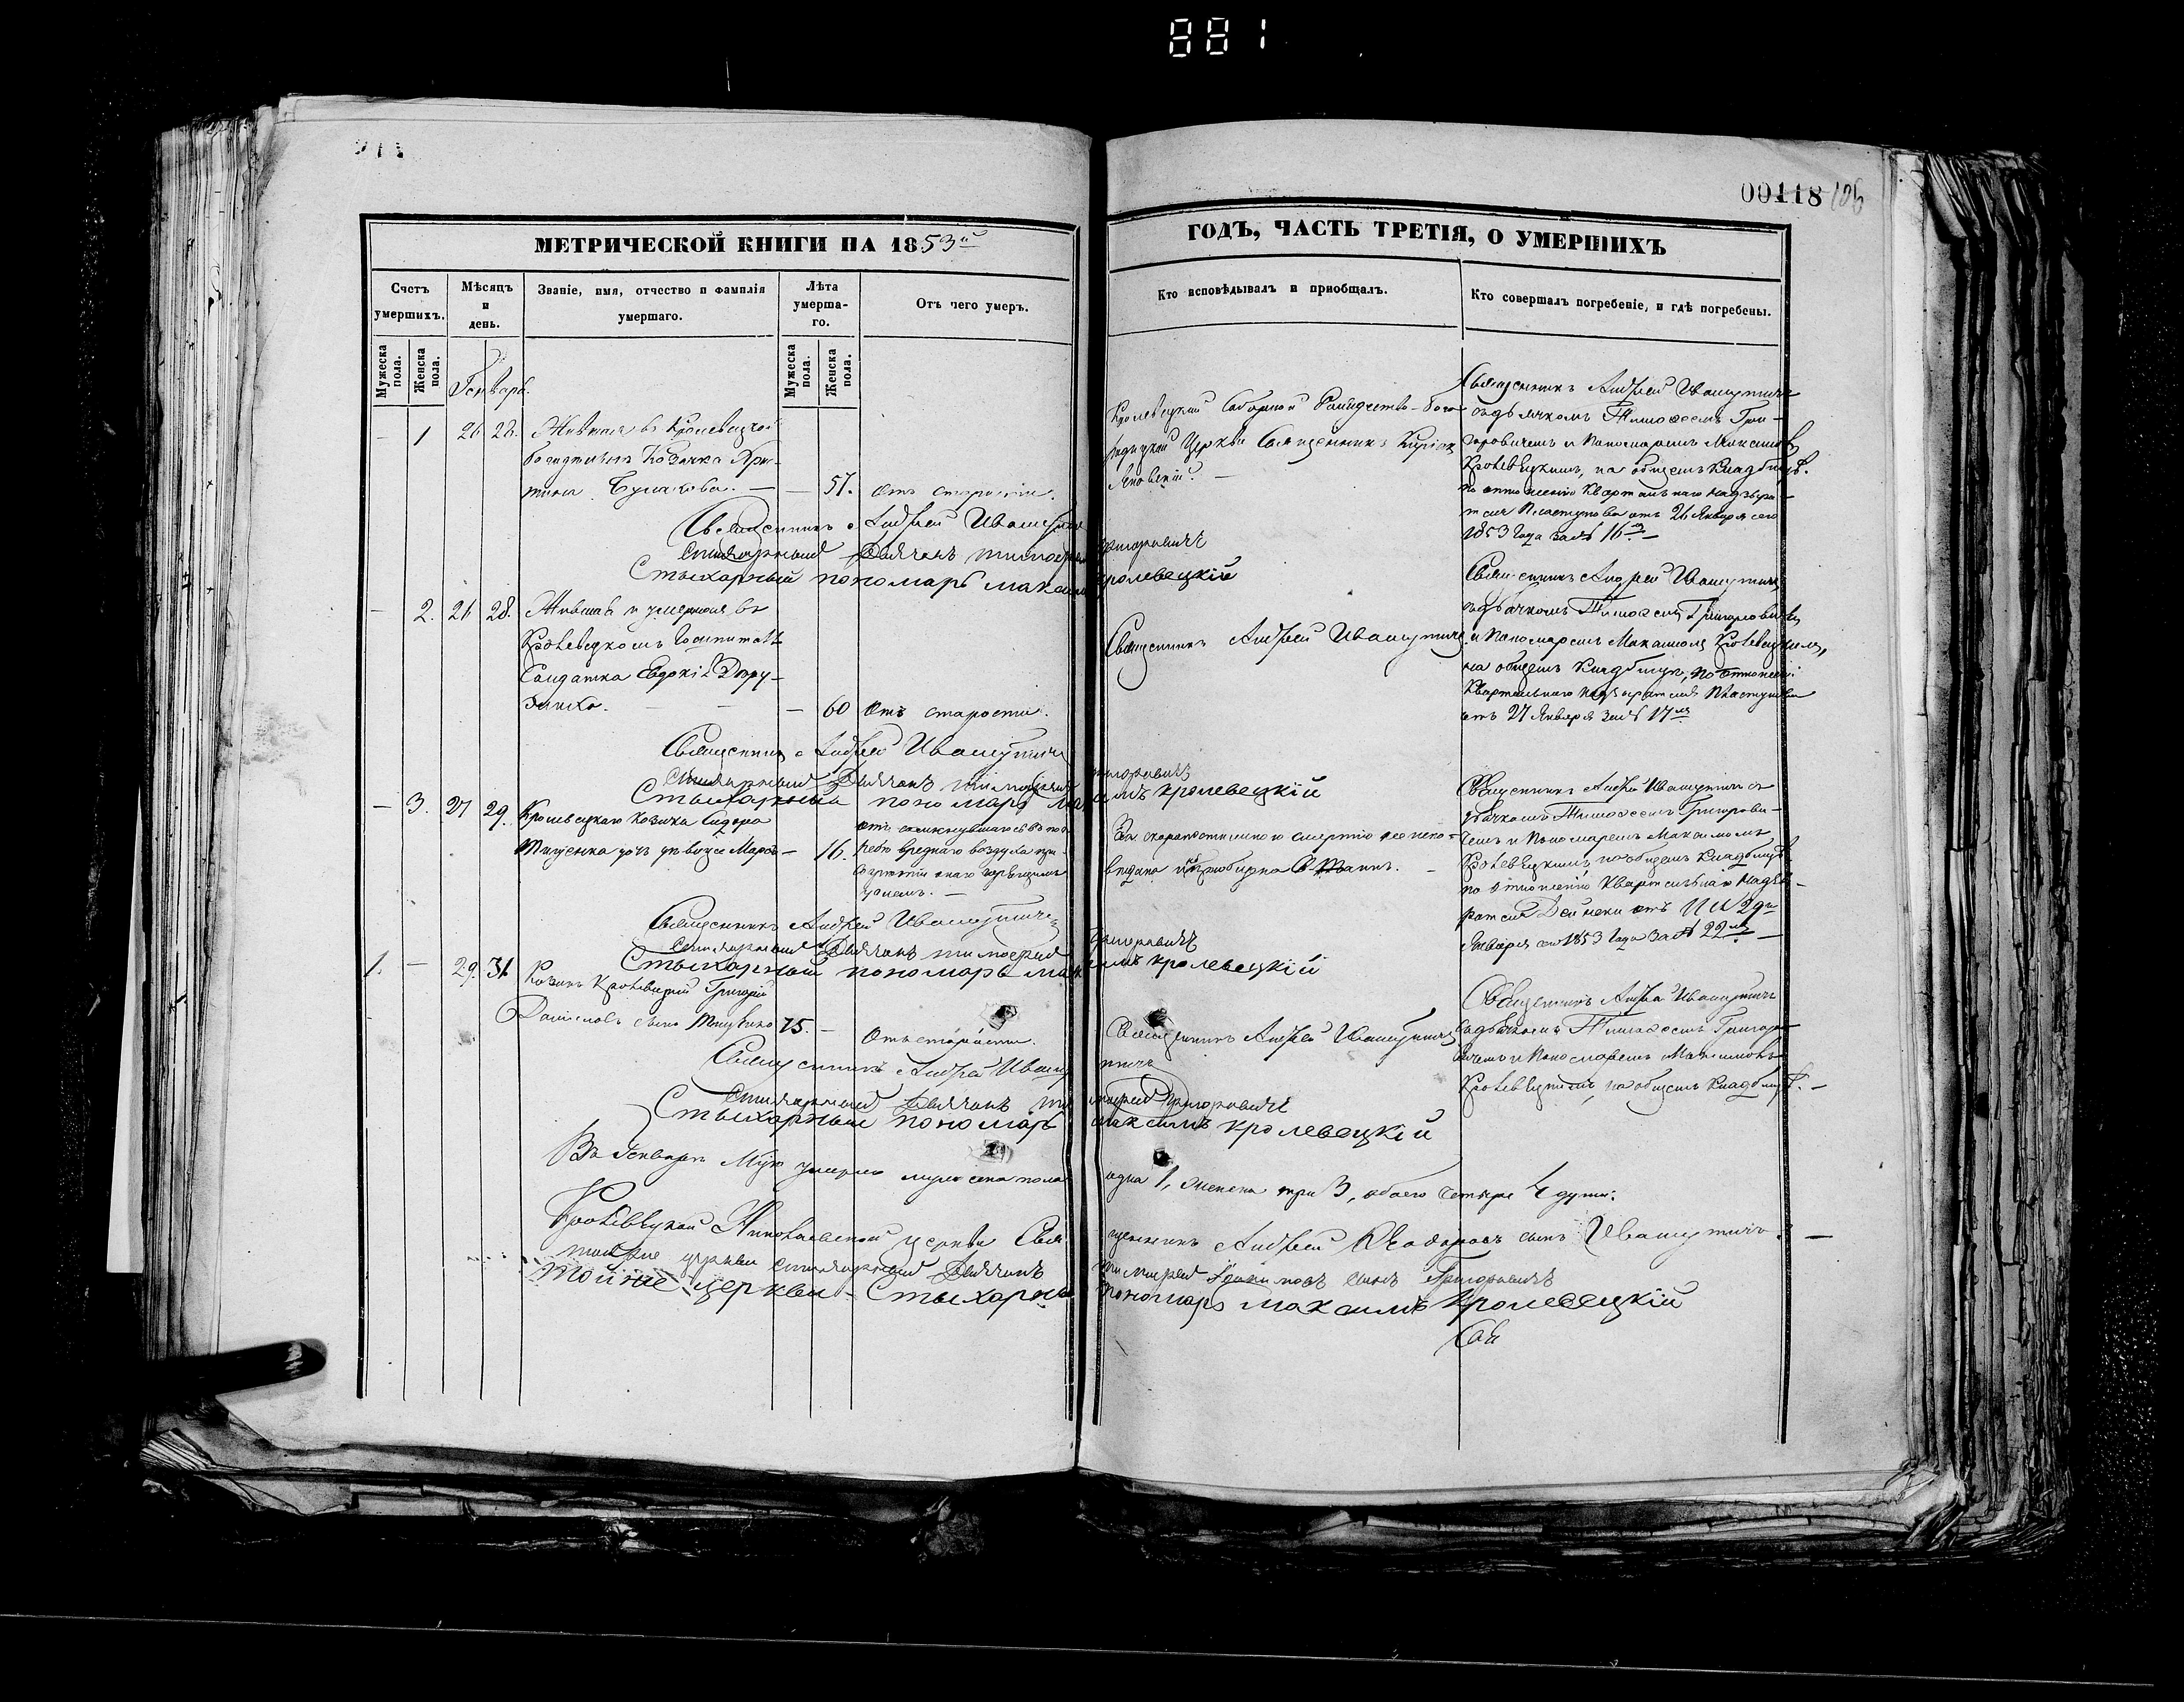 881
00118 106
МЕТРИЧЕСКОЙ КНИГИ НА 1853й
ГОДЪ, ЧАСТЬ ТРЕТІЯ, О УМЕРШИХЪ
Счетъ умершихъ.
Мѣсяцъ и день.
Званіе, имя, отчество и фамилія умершаго.
Лѣта умерша-го.
Отъ чего умеръ.
Кто исповѣдывалъ и приобщалъ.
Кто совершалъ погребеніе, и гдѣ погребены.
Мужеска пола.
Женска пола.
Мужеска пола.
Женска пола.
Генварь.
– 1 26 28. Жившая въ Кролевецкой
богадельни Козачка Хри-
тина – – 57. отъ старости.
Кролевецкий Соборной Рождество-Бого-
родицкой Церкви Священникъ
Яновскій. –
Священникъ Андрей Ивашутичъ
съ дьячкомъ Тимофеемъ Гри-
горовичемъ и Пономаремъ Максимомъ
Кролевецкимъ, на общемъ кладбищѣ.
по отношенію Квартальнаго надзира-
теля Пластунова отъ 26 Января сего
1853 года за № 16м –
Священникъ Андрей Ивашутичъ
Стихарный Дьячокъ Тимофей Григоровичъ
Стыхарный пономарь максимъ кролевецкій
– 2. 26 28. Жившая и умершая въ
Кролевецкомъ Госпиталѣ
Салдатка Евдокія
– 60 отъ старости.
Священникъ Андрей Ивашутичъ
Священникъ Андрей Ивашутичъ
съ дьячкомъ Тимофеемъ Григоровичемъ
и Пономаремъ Максимомъ Кролевецкимъ,
на общемъ кладбищѣ, по отношенію
Квартальнаго надзирателя Пластунова
отъ 27 Января за № 17м
Священникъ Андрей Ивашутичъ
Стихарный Дьячокъ Тимофей Григоровичъ
Стыхарный пономарь максимъ кролевецкій
– 3. 27 29. Кролевецкаго Козака Сидора
дочь девица –
16.
вреднаго воздуха
За скоропостижною смертію не испо-
ведана и не приобщена
Священникъ Андрей Ивашутичъ съ
дьячкомъ Тимофеемъ Григорови-
чемъ и Пономаремъ Максимомъ
Кролевецкимъ, на общемъ кладбищѣ
по отношенію Квартальнаго надзи-
рателя Дейнеки отъ 29го
Января сего 1853 года за № 22м –
Священникъ Андрей Ивашутичъ
Стихарный Дьячокъ тимофей Григоровичъ
Стыхарный пономарь максимъ кролевецкій
1. – 29. 31. Козакъ Кролевецкий Григорий
Даниловъ сынъ 75. – Отъ старости.
Священникъ Андрей Ивашутичъ
Священникъ Андрей Ивашутичъ
съ дьячкомъ Тимофеемъ Григоро-
вичемъ и Пономаремъ Максимомъ
Кролевецкимъ, на общемъ кладбищѣ. –
Священникъ Андрей Ивашутичъ
Стихарный Дьячокъ тимофей Григоровичъ
Стыхарный пономарь максимъ кролевецкій
Въ Генварѣ М-цѣ умерло мужеска пола одна 1, женска три 3, обоего четыре 4 души.
Кролевецкой Николаевской церкви Священникъ Андрей Феодоровъ сынъ Ивашутичъ. –
тойже церкви стихарный Дьячокъ тимофей сынъ Григоровичъ
тойже церкви Стыхарный пономарь максимъ кролевецкій